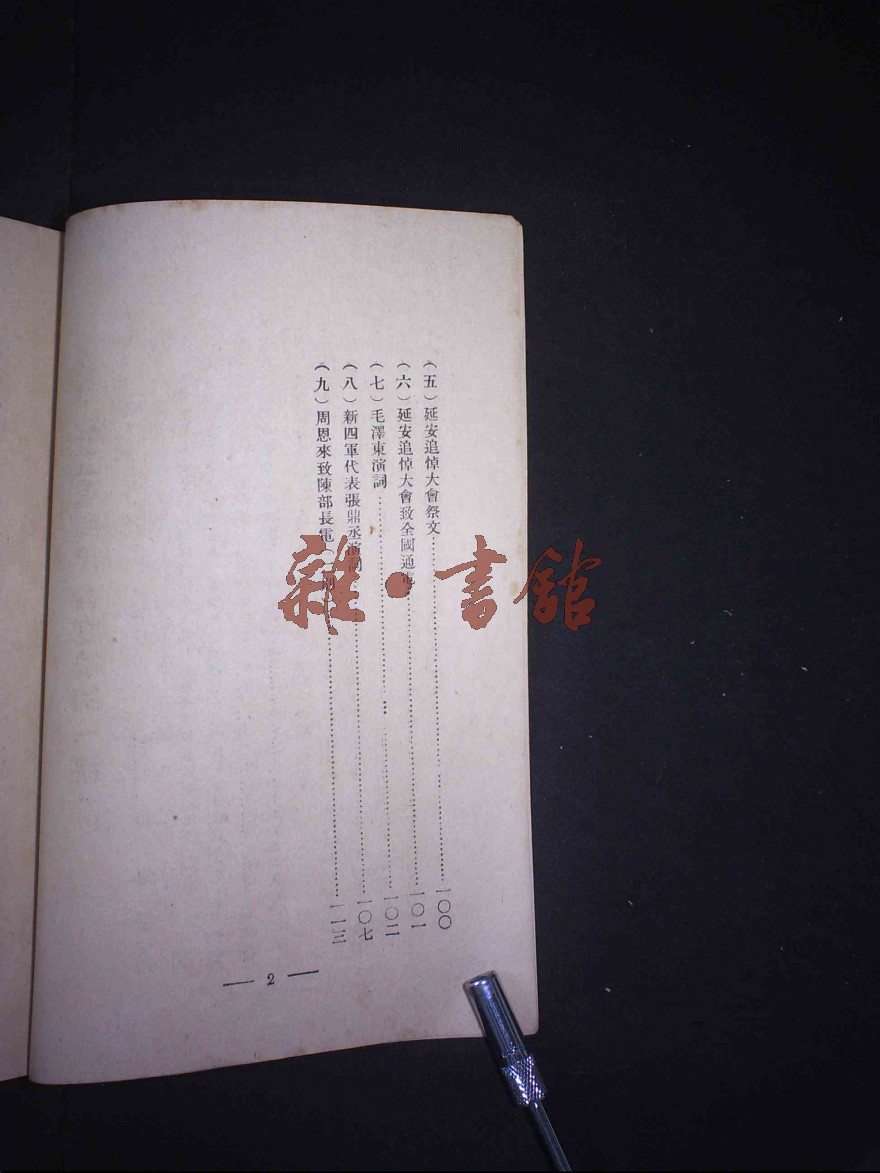 (五)延安追悼大會祭文……一〇〇
(六)延安追悼大會致全國通電……一〇一
(七)毛澤東演詞……一〇二
(八)新四軍代表張鼎丞演詞……一〇七
(九)周恩來致陳部長電……一一三
— 2 —
雜·書館